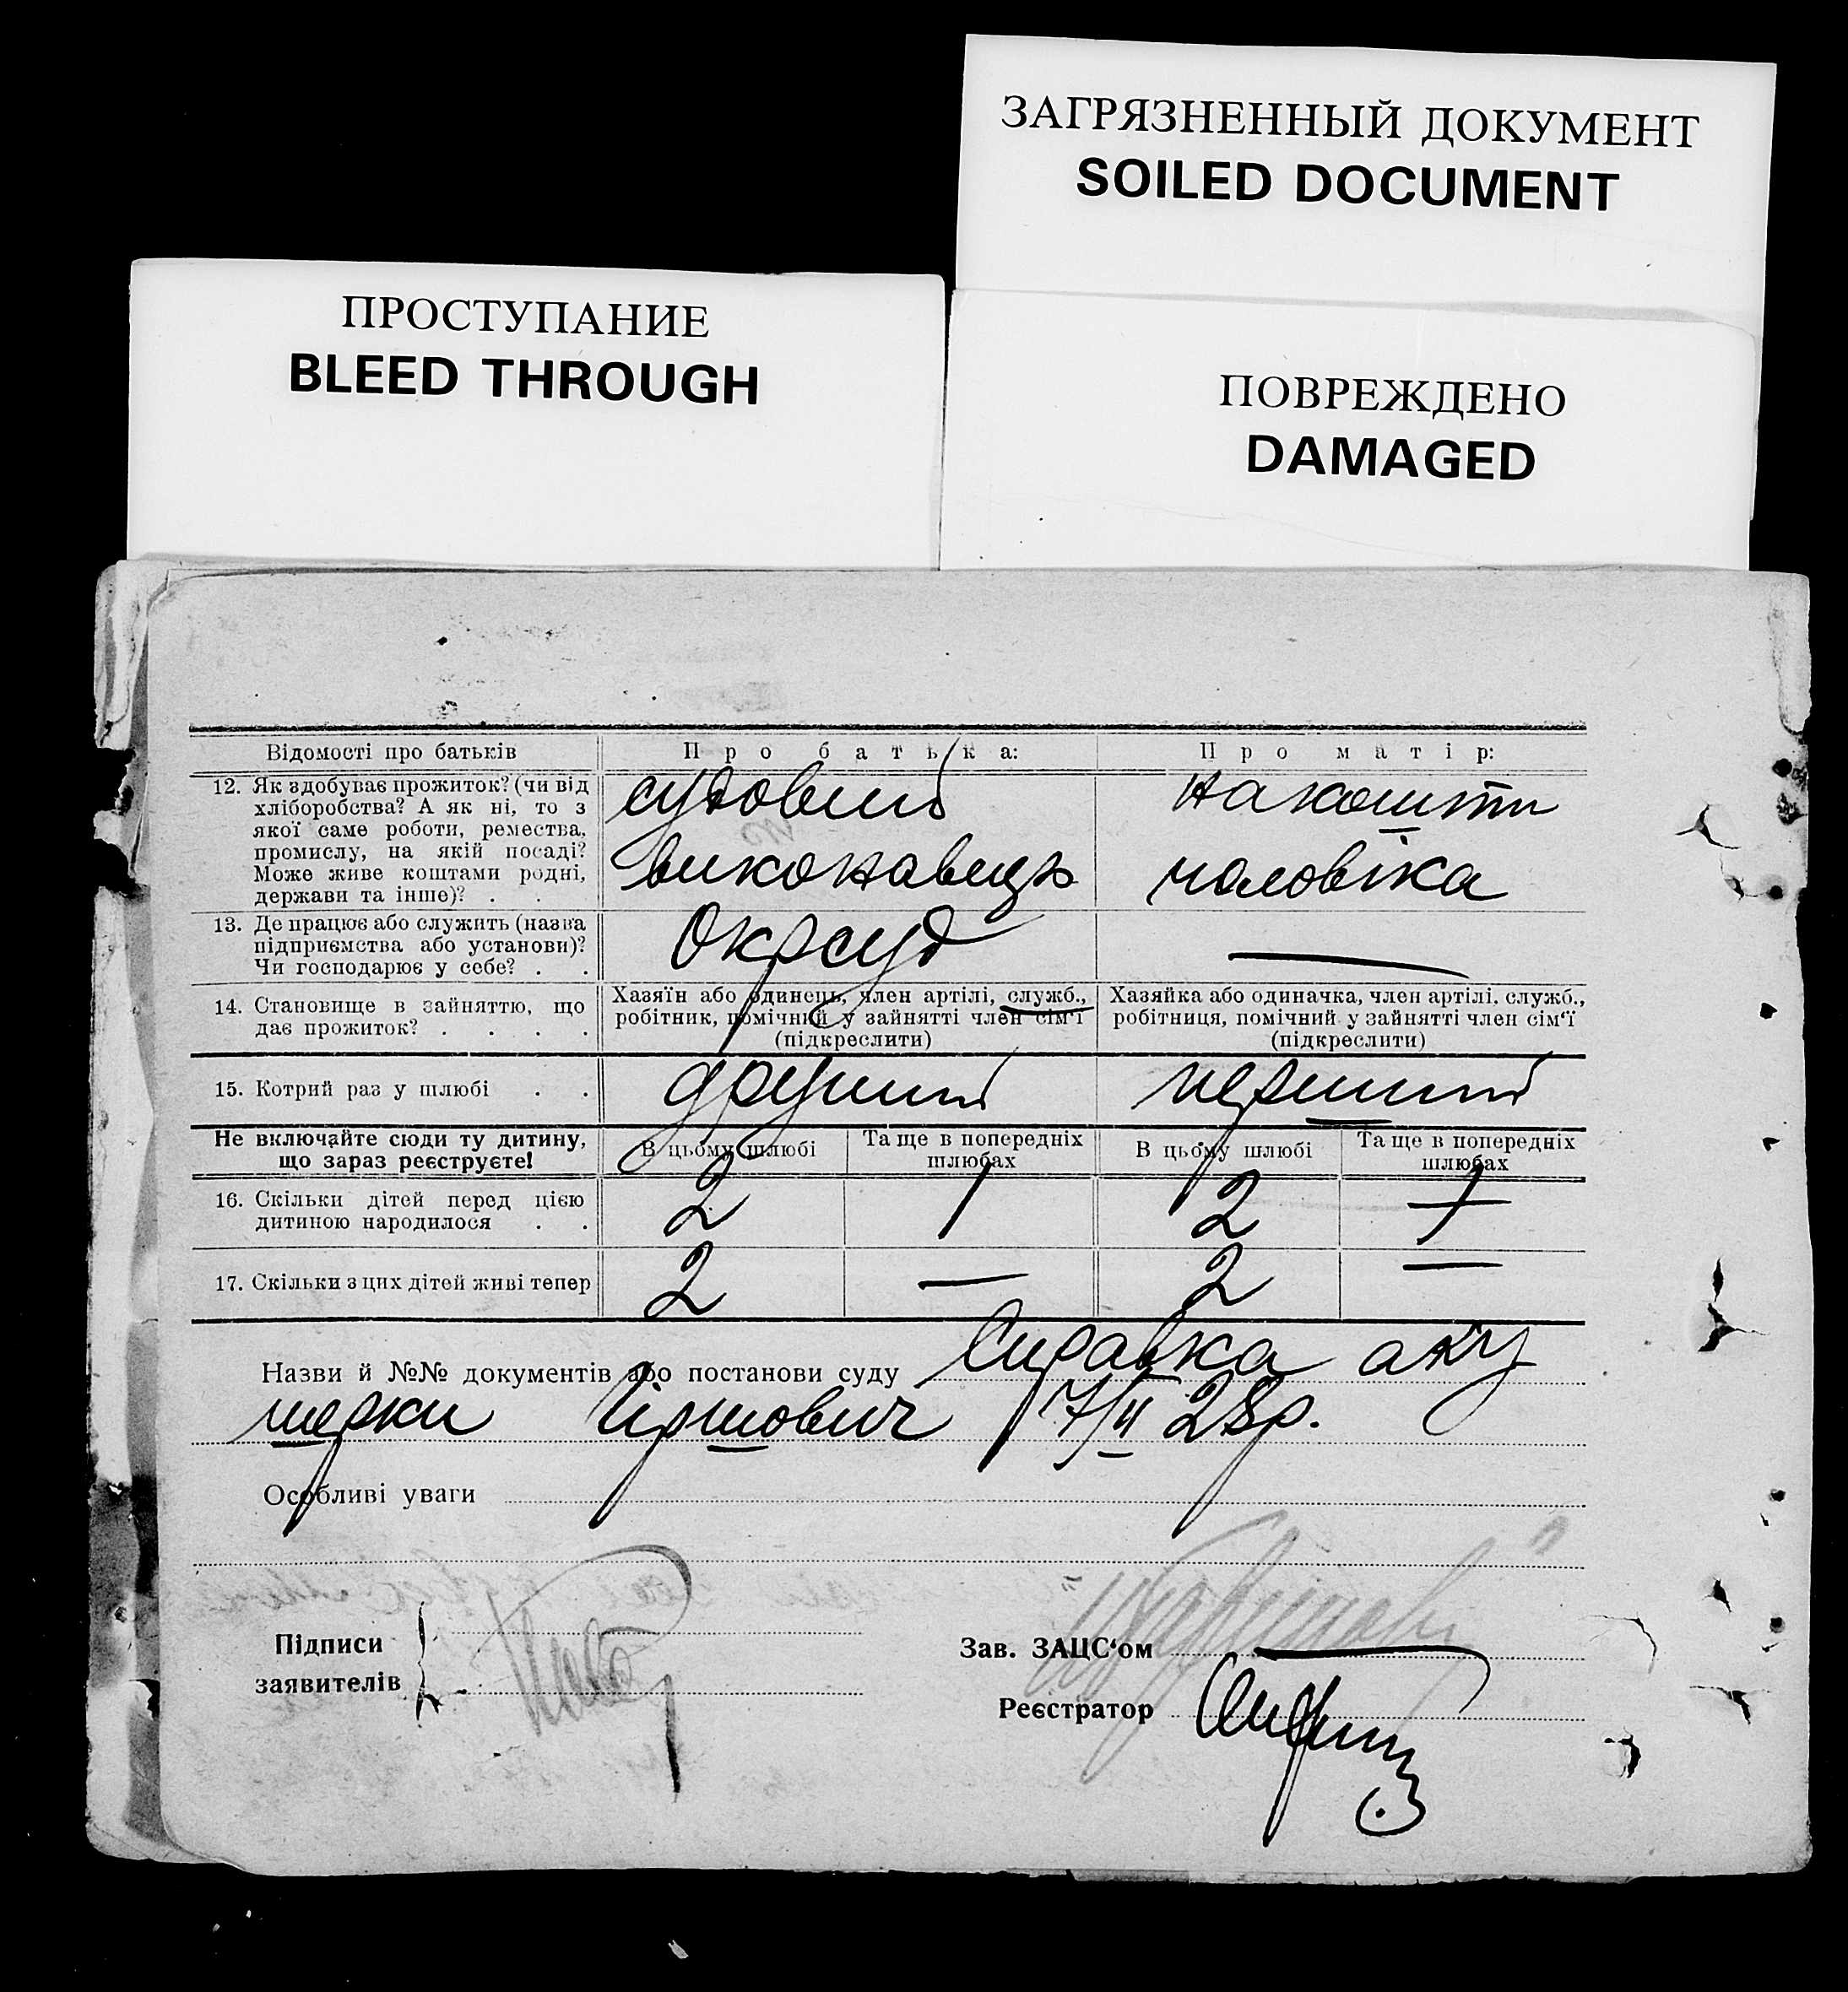 ЗАГРЯЗНЕННЫЙ ДОКУМЕНТ
SOILED DOCUMENT
ПРОСТУПАНИЕ
BLEED THROUGH
ПОВРЕЖДЕНО
DAMAGED
Відомості про батьків Про батька: Про матір:
12. Як здобуває прожиток? (чи від
хліборобства? А як ні, то з
якої саме роботи, ремества,
промислу, на якій посаді?
Може живе коштами родні,
держави та інше)? . . .
судовий
виконавець
на кошти
чоловіка
13. Де працює або служить (назва
підприємства або установи)?
Чи господарює у себе? . .
Окрсуд —
14. Становище в зайняттю, що
дає прожиток? . . . .
Хазяїн або одинець, член артілі, служб.,
робітник, помічний у зайнятті член сім'ї
(підкреслити)
Хазяйка або одиначка, член артілі, служб.,
робітниця, помічний у зайнятті член сім'ї
(підкреслити)
15. Котрий раз у шлюбі . . другий перший
Не включайте сюди ту дитину,
що зараз реєструєте!
В цьому шлюбі
Та ще в попередніх
шлюбах
В цьому шлюбі
Та ще в попередніх
шлюбах
16. Скільки дітей перед цією
дитиною народилося . .
2 1 2
17. Скільки з цих дітей живі тепер 2 — 2 —
Назви й №№ документів або постанови суду Справка аку
шерки Гіршович 17/II 28р.
Особливі уваги
Підписи
заявителів
Зав. ЗАЦС'ом
Реєстратор